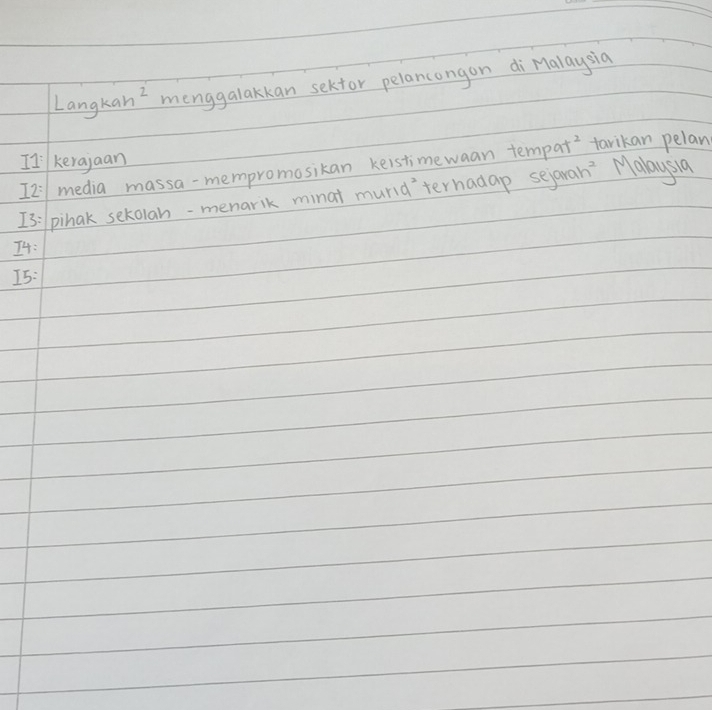 Langkah² menggalakkan sektor pelancongan di Malaysia
I1: kerajaan
I2: media massa - mempromosikan keistimewaan tempat² tarikan pelan
I3: pihak sekolah - menarik minat murid² terhadap sejarah² Malaysia
I4:
I5: